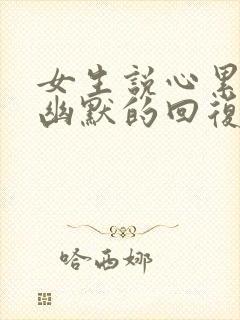 女生説心累
幽默的回復
哈西娜